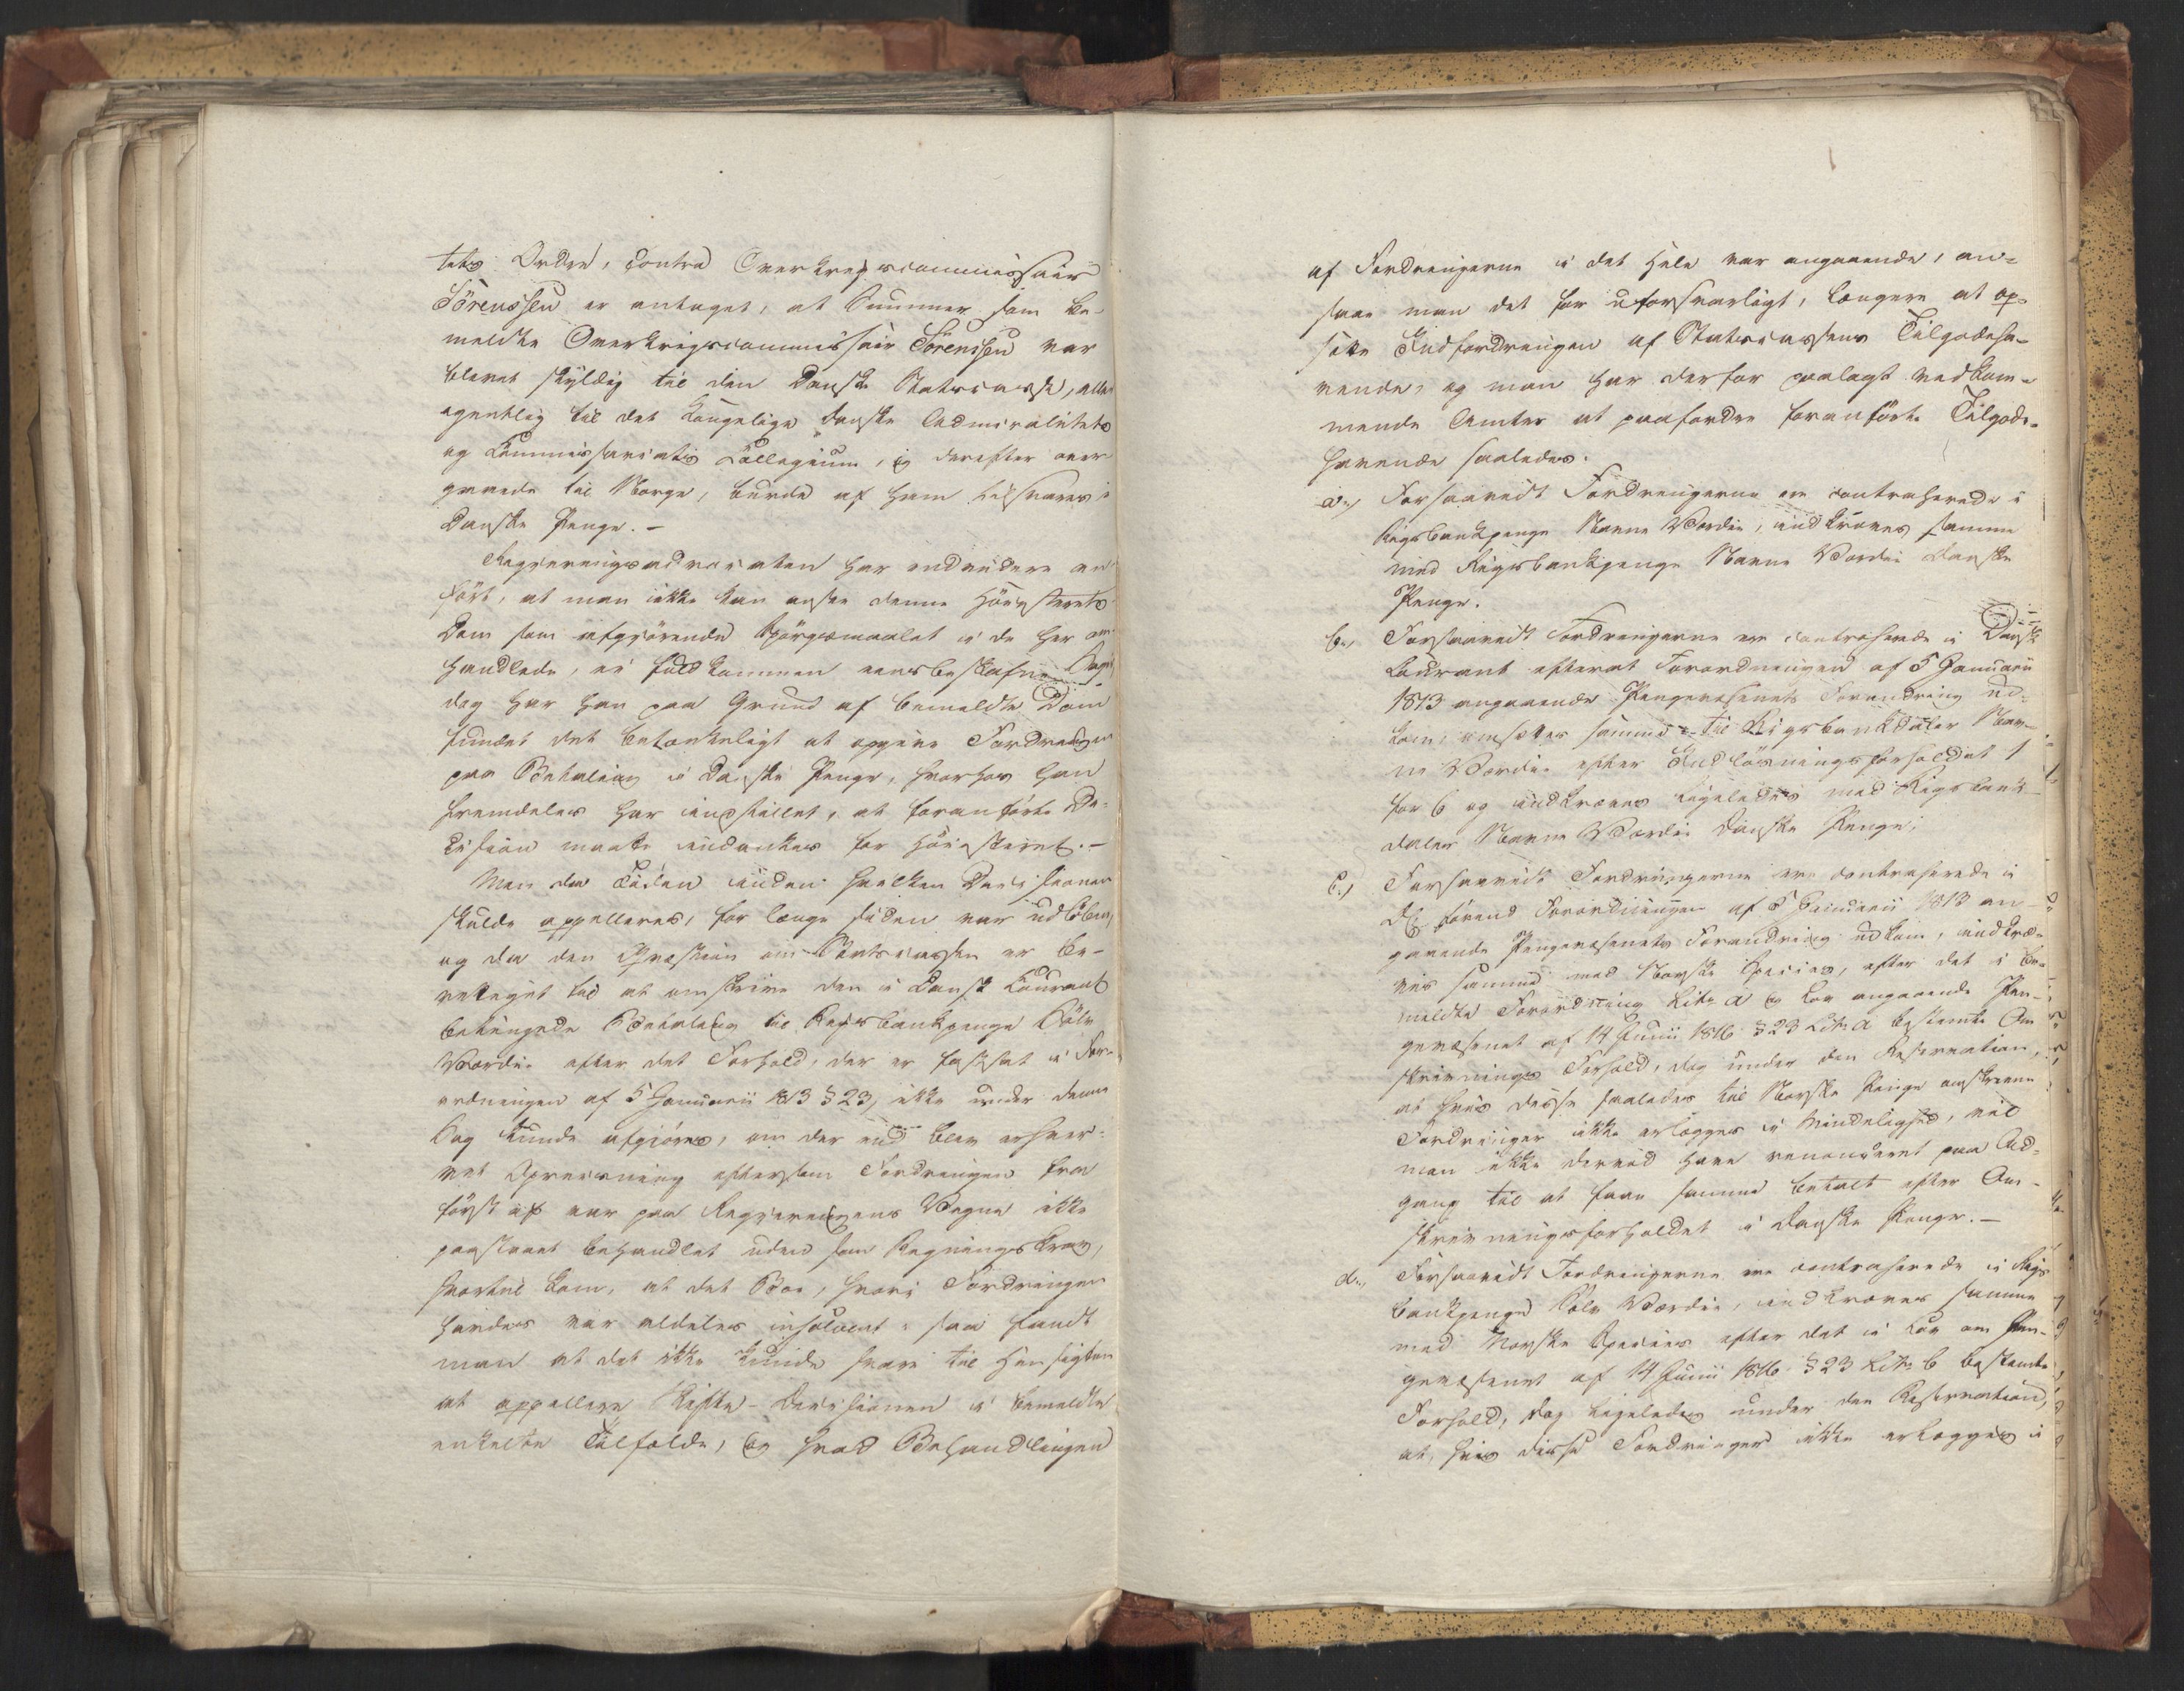 tets Ordre, contra Overkrigscommissair
Sörenssen er antaget, at Summer som be-
meldte Overkrigscommissair Sörenssen var
blevet skyldig til den Danske Statscasse, eller
egentlig til det Kongelige danske Admiralitets
og Commissariats Collegium, og derefter over-
gaaede til Norge, burde af ham tilsvares i
Danske Penge. -
Regjeringsadvocaten har endvidere an-
fört, at man ikke kan ansee denne Höiesterets
Dom som afgjörende Spörgsmaalet i de her om-
handlede, ei fuldkommen eensbeskafne Sager
dog har han paa Grund af bemeldte Dom
fundet det betænkeligt at opgive Fordringen
paa Betaling i Danske Penge, hvorhos han
fremdeles har indstillet, at foranförte De-
cision maatte indankes for Höiesteret. -
Men da Tiden inden hvilken Decisionen
skulde appelleres, for længe siden var udlöben,
og da den Qvæstion om Statscassen er be-
rettiget til at omskrive den i Dansk Courant
betingede Betaling til Rigsbankpenge Sölv
Værdie efter det Forhold, der er fastsat i For-
ordningen af 5 Januarii 1813 § 23, ikke under denne
Sag kunde afgjöres, om der end blev erhver-
vet Opreisning eftersom Fordringen fra
först af var paa Regjeringens Vegne ikke
paastaaet behandlet uden som Regningskrav,
hvortil kom, at det Boe, hvori Fordringen
havdes var aldeles insolvent: saa fandt
man at det ikke kunde svare til Hensigten
at appellere Skifte-Decisionen i bemeldte
enkelte Tilfælde, og hvad Behandlingen
af Fordringerne i det Hele var angaaende, an-
saae man det for uforsvarligt, længere at op-
sætte Indfordringen af Statscassens Tilgodeha-
vende, og man har derfor paalagt vedkom-
mende Amter at paafordre foranförte Tilgode-
havende saaledes.
a., Forsaavidt Fordringerne ere contraherede i
Rigsbankpenge Navne Værdie, indkræves samme
med Rigsbankpenge Navne Værdie Danske
Penge.
b., Forsaavidt Fordringerne ere contraherede i Dansk
Courant efterat Forordningen af 5 Januarii
1813 angaaende Pengevæsenets Forandring ud-
kom, omsættes samme til Rigsbankdaler Nav-
ne Værdie efter Indlösningsforholdet 1
for 6 og indkræves ligeledes med Rigsbank-
daler Navne Værdie Danske Penge;
c., Forsaavidt Fordringerne ere contraherede i
D.C. förend Forordningen af 5 Januarii 1813 an-
gaaende Pengevæsenets Forandring udkom, indkræ-
ves samme med Norske Species, efter det i be-
meldte Forordning Litr. a og Lov angaaende Pen-
gevæsenet af 14 Junii 1816 § 23 Litr. a bestemte Om-
skrivnings Forhold, dog under den Reservation,
at hvis disse saaledes til Norske Penge omskrevne
Fordringer ikke erlægges i Mindelighed, vil
man ikke derved have renonceret paa Ad-
gang til at faae samme betalt efter Om-
skrivningsforholdet i Danske Penge. -
d., Forsaavidt Fordringerne ere contraherede i Rigs-
bankpenge Sölv Værdie, indkræves samme
med Norske Species efter det i Lov om Pen-
gevæsenet af 14 Junii 1816 § 23 Litr. b bestemte
Forhold, dog ligeledes under den Reservation,
at, hvis disse Fordringer ikke erlægges i